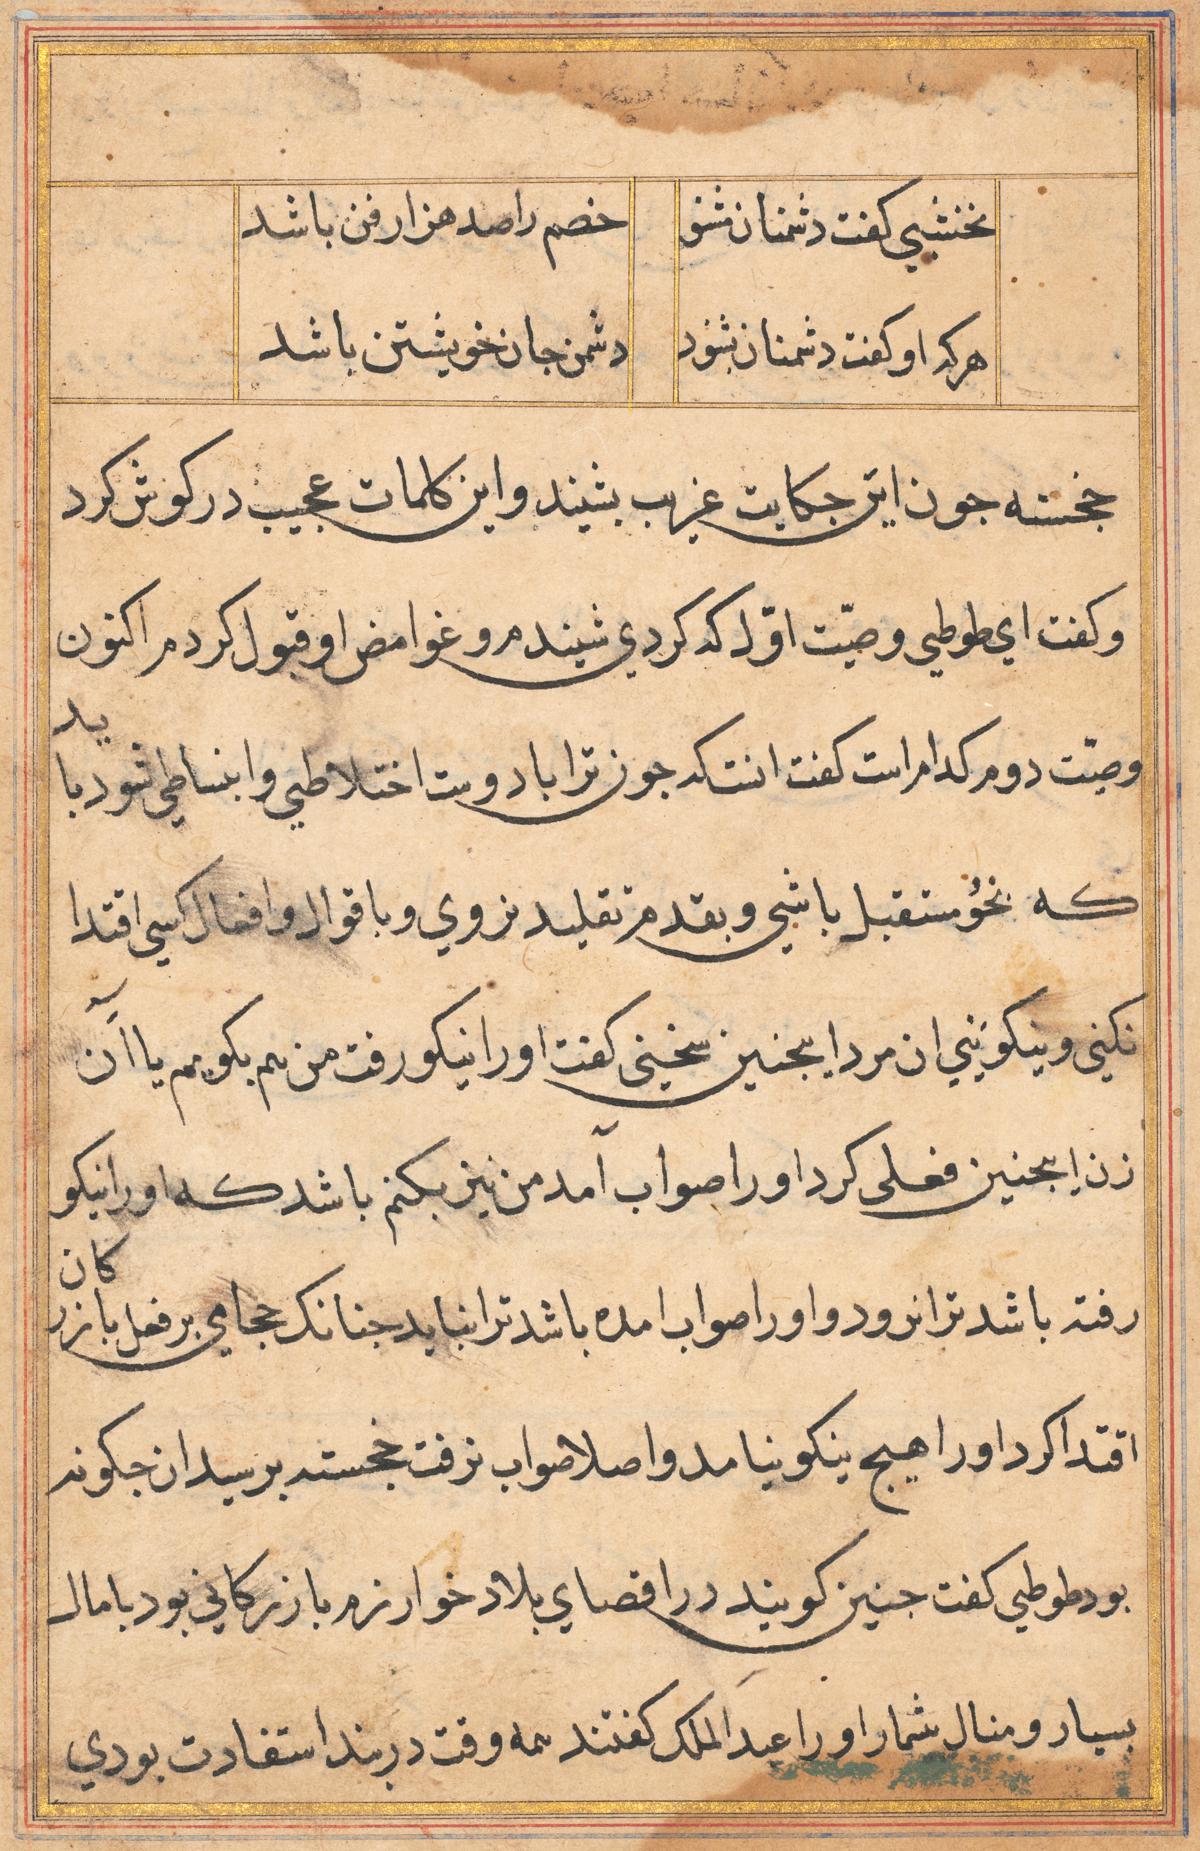 نخشبی کفت دشمنان مشنو خصم را صد هزار فن باشد
هرکه او کفت دشمنان بشنود دشمن جان خویشتن باشد
خجسته جون این حکایت غریب بشیند و این کلمات عجیب در کوش کرد
و کفت ای طوطی وصیّت اوّل که کردی شیندم و غوامض او قبول کردم اکنون
وصیّت دوم کدام است کفت انست که جون ترا با دوست اختلاطی و انبساطی شود باید
که بخُو مستقبل باشی و بقدم تقلید نروی و باقوال و افعال کسی اقتدا
نکنی و نیکو بینی ان مرد اینجنین سخنی کفت او را نیکو رفت من هم بکویم یا آن
زن اینجنین فعلی کرد او را صواب آمد من نیز بکنم باشد که او را نیکو
رفته باشد ترا نرود و او را صواب امده باشد ترا نیاید جنانک حجامی بر فعل بازرکان
اقتدا کرد او را هیج نیکو نیامد و اصلا صواب نرفت خجسته برسید ان جکونه
بود طوطی کفت جنین کویند در اقصای بلاد خوارزم بازرکانی بود با مال
بسیار و منال بیشمار او را عبد الملک کفتند همه وقت در بند استفادت بودی